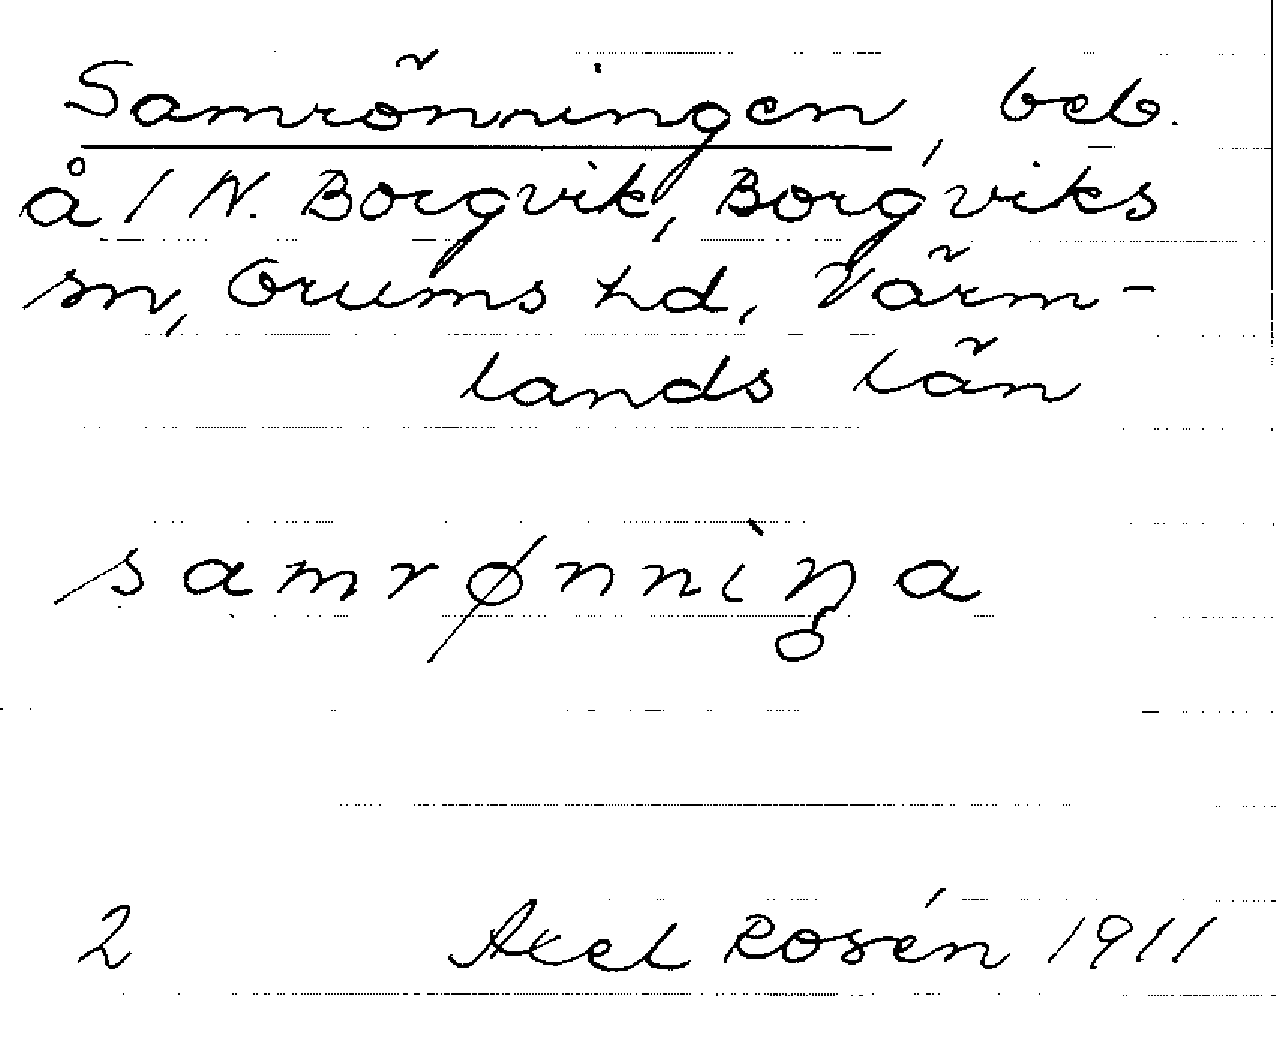 Samrönningen, beb.
å 1 N. Borgvik, Borgviks
sn, Grums hd, Värm-
lands län
samrønniŋa
2 Axel Rosén 1911